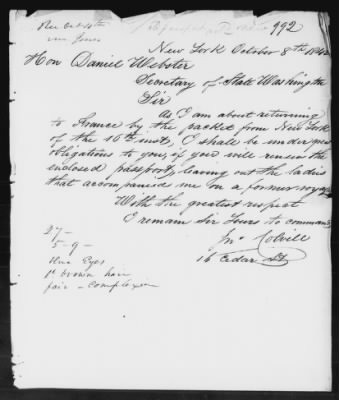 Rec Oct 10th
992
New York October 8th 1842
Hon Daniel Webster
Secretary of State Washington
Sir
As I am about returning
to France by the packet from New York
of the 16th inst, I shall be under great
obligations to you, if you will renew the
enclosed passport, leaving out the ladies
that accompanied me on a former voyage
With the greatest respect
I remain Sir Yours to command
Jno Colvill
16 Cedar St
27-
5-9-
Blue Eyes
Lt brown hair
fair - complexion